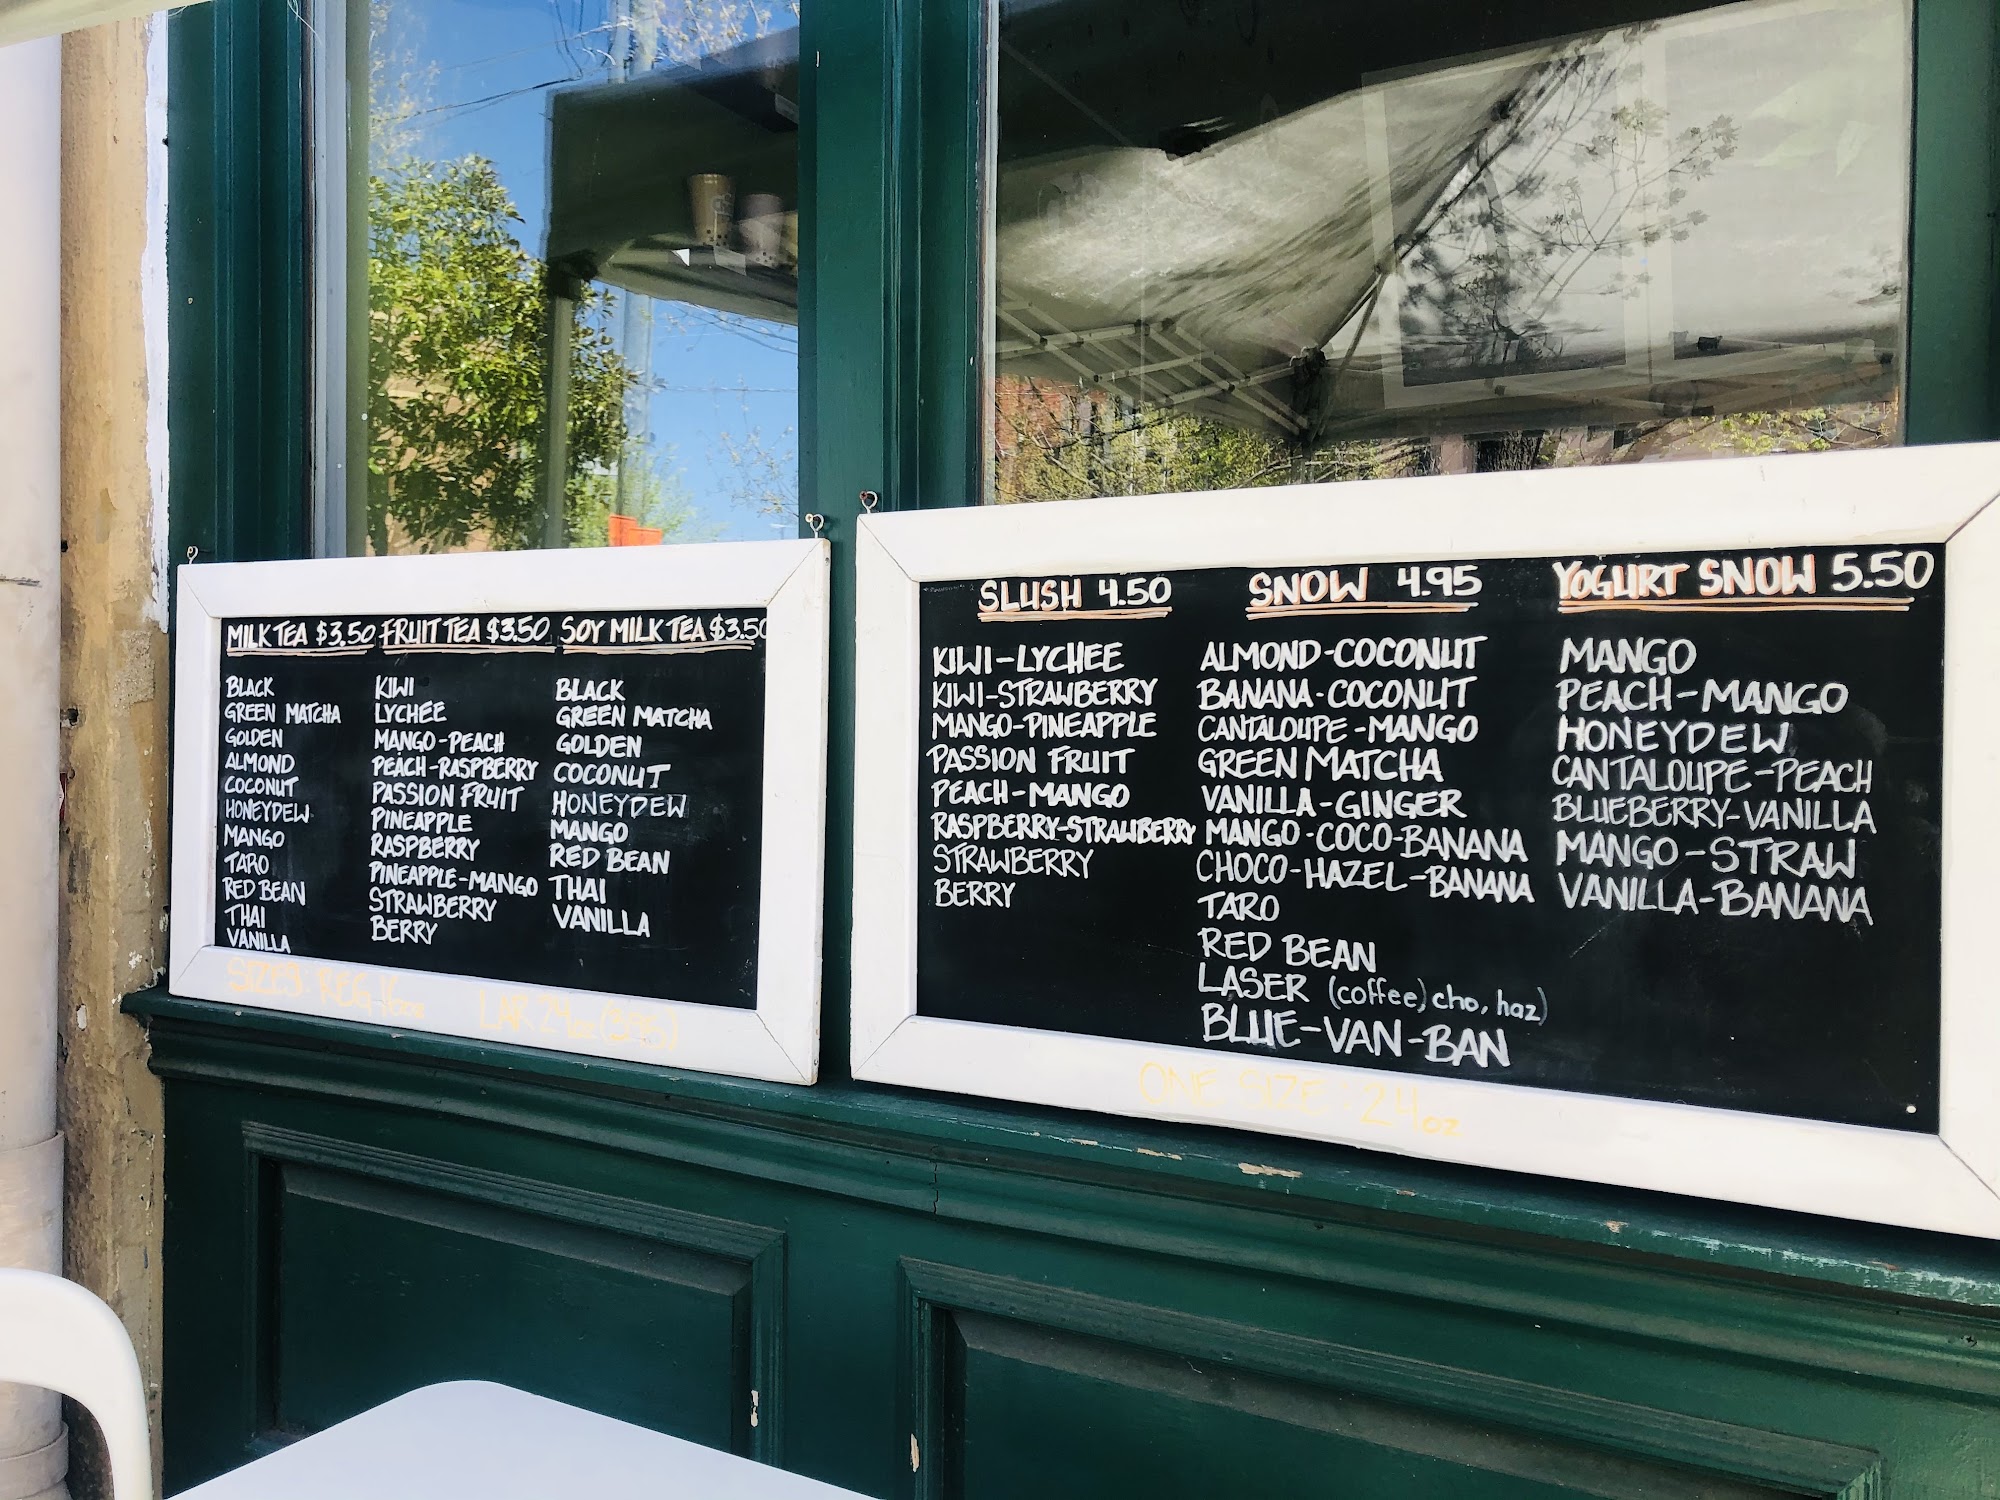 MILK TEA $3.50
BLACK
GREEN MATCHA
GOLDEN
ALMOND
COCONUT
HONEYDEW
MANGO
TARO
RED BEAN
THAI
VANILLA
FRUIT TEA $3.50
KIWI
LYCHEE
MANGO-PEACH
PEACH-RASPBERRY
PASSION FRUIT
PINEAPPLE
RASPBERRY
PINEAPPLE-MANGO
STRAWBERRY
BERRY
SOY MILK TEA $3.50
BLACK
GREEN MATCHA
GOLDEN
COCONUT
HONEYDEW
MANGO
RED BEAN
THAI
VANILLA
SIZES: REG 16oz LAR 24oz
SLUSH 4.50
KIWI-LYCHEE
KIWI-STRAWBERRY
MANGO-PINEAPPLE
PASSION FRUIT
PEACH-MANGO
RASPBERRY-STRAWBERRY
STRAWBERRY
BERRY
SNOW 4.95
ALMOND-COCONUT
BANANA-COCONUT
CANTALOUPE-MANGO
GREEN MATCHA
VANILLA-GINGER
MANGO-COCO-BANANA
CHOCO-HAZEL-BANANA
TARO
RED BEAN
LASER (coffee, cho, haz)
BLUE-VAN-BAN
YOGURT SNOW 5.50
MANGO
PEACH-MANGO
HONEYDEW
CANTALOUPE-PEACH
BLUEBERRY-VANILLA
MANGO-STRAW
VANILLA-BANANA
ONE SIZE: 24oz